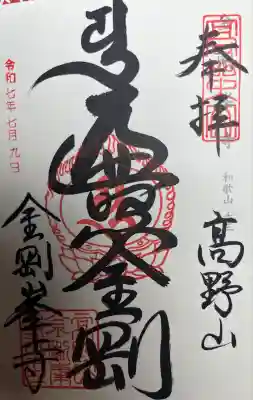 奉拝
和歌山
髙野山
遍照金剛
令和七年七月九日
金剛峯寺